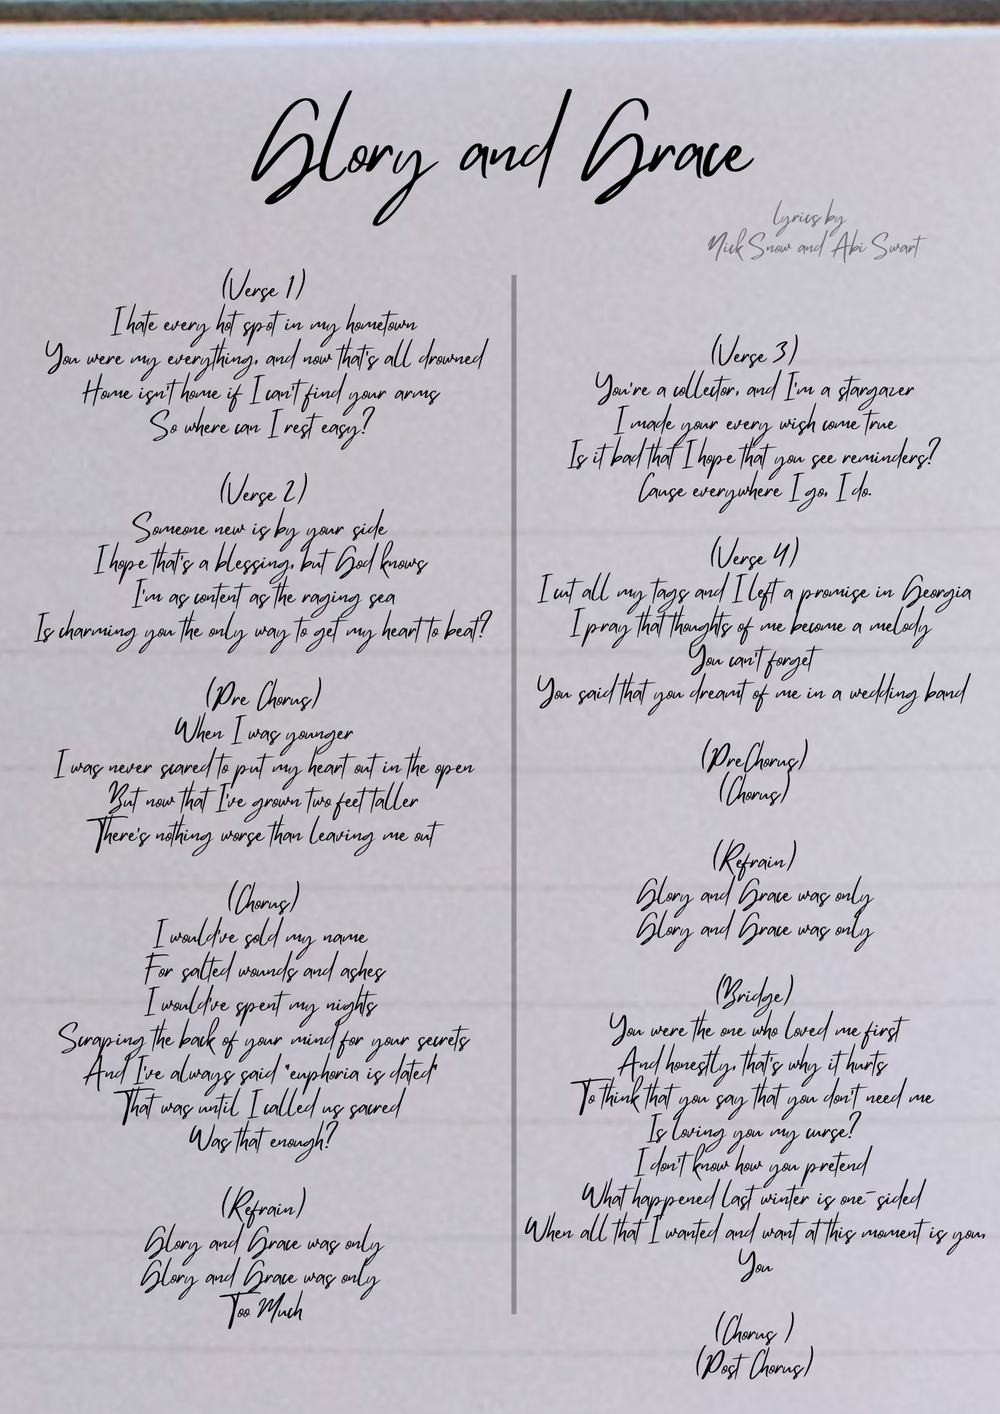 Glory and Grace
Lyrics by
Nick Snow and Abi Swart
(Verse 1)
I hate every hot spot in my hometown
You were my everything, and now that's all drowned
Home isn't home if I can't find your arms
So where can I rest easy?
(Verse 2)
Someone new is by your side
I hope that's a blessing, but God knows
I'm as content as the raging sea
Is charming you the only way to get my heart to beat?
(Pre Chorus)
When I was younger
I was never scared to put my heart out in the open
But now that I've grown two feet taller
There's nothing worse than leaving me out
(Chorus)
I would've sold my name
For salted wounds and ashes
I would've spent my nights
Scraping the back of your mind for your secrets
And I've always said "euphoria is dated"
That was until I called us sacred
Was that enough?
(Refrain)
Glory and Grace was only
Glory and Grace was only
Too Much
(Verse 3)
You're a collector, and I'm a stargazer
I made your every wish come true
Is it bad that I hope that you see reminders?
Cause everywhere I go, I do.
(Verse 4)
I cut all my tags and I left a promise in Georgia
I pray that thoughts of me become a melody
You can't forget
You said that you dreamt of me in a wedding band
(PreChorus)
(Chorus)
(Refrain)
Glory and Grace was only
Glory and Grace was only
(Bridge)
You were the one who loved me first
And honestly, that's why it hurts
To think that you say that you don't need me
Is loving you my curse?
I don't know how you pretend
What happened last winter is one-sided
When all that I wanted and want at this moment is you,
You
(Chorus )
(Post Chorus)